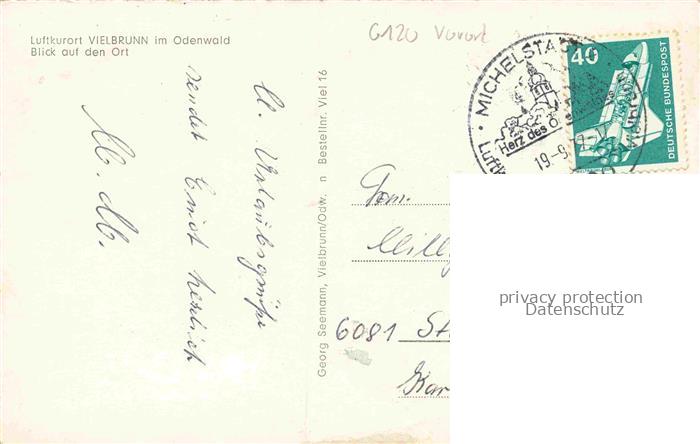 Luftkurort VIELBRUNN im Odenwald
Blick auf den Ort
6120 Vorort
MICHELSTADT
Herz des Odenwaldes
19.-9.
40
DEUTSCHE BUNDESPOST
Georg Seemann, Vielbrunn/Odw. n Bestellnr. Viel 16
Urlaubsgrüße
sendet Euch herzlich
Fam.
Willy
6081 St
privacy protection
Datenschutz